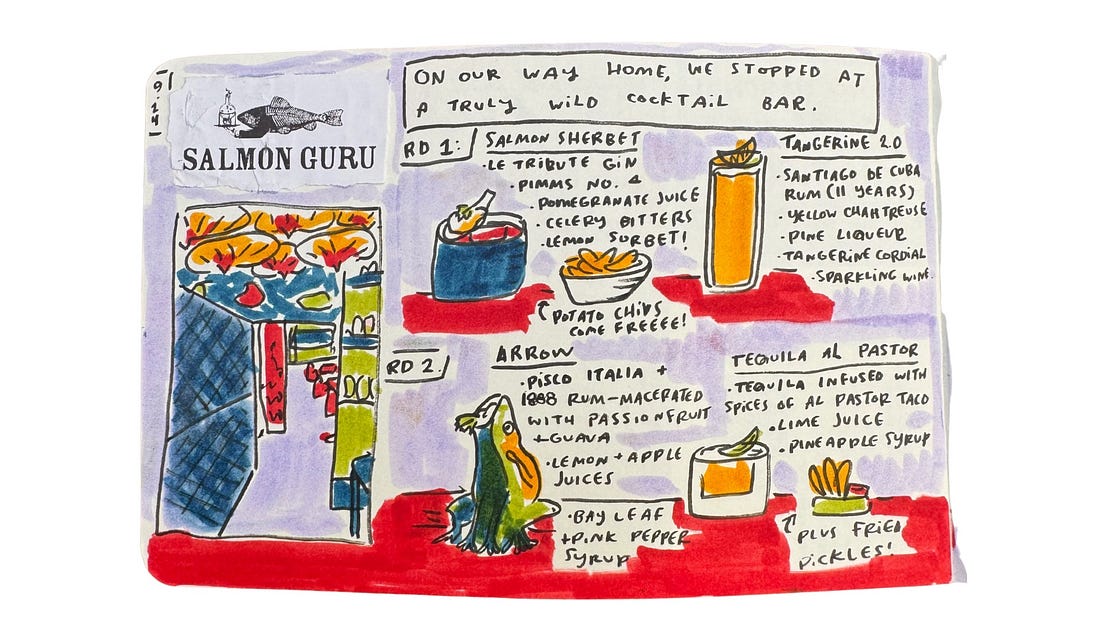 SALMON GURU
ON OUR WAY HOME, WE STOPPED AT
A TRULY WILD COCKTAIL BAR.
RD 1:
SALMON SHERBET
·LE TRIBUTE GIN
·PIMMS NO. 4
·POMEGRANATE JUICE
·CELERY BITTERS
·LEMON SORBET!
POTATO CHIPS
COME FREEEE!
TANGERINE 2.0
·SANTIAGO DE CUBA
RUM (11 YEARS)
·YELLOW CHARTREUSE
·PINE LIQUEUR
·TANGERINE CORDIAL
·SPARKLING WINE
RD 2.
ARROW
·PISCO ITALIA +
1888 RUM-MACERATED
WITH PASSIONFRUIT
+GUAVA
·LEMON + APPLE
JUICES
·BAY LEAF
+PINK PEPPER
SYRUP
TEQUILA AL PASTOR
·TEQUILA INFUSED WITH
SPICES OF AL PASTOR TACO
·LIME JUICE
·PINEAPPLE SYRUP
PLUS FRIED
PICKLES!